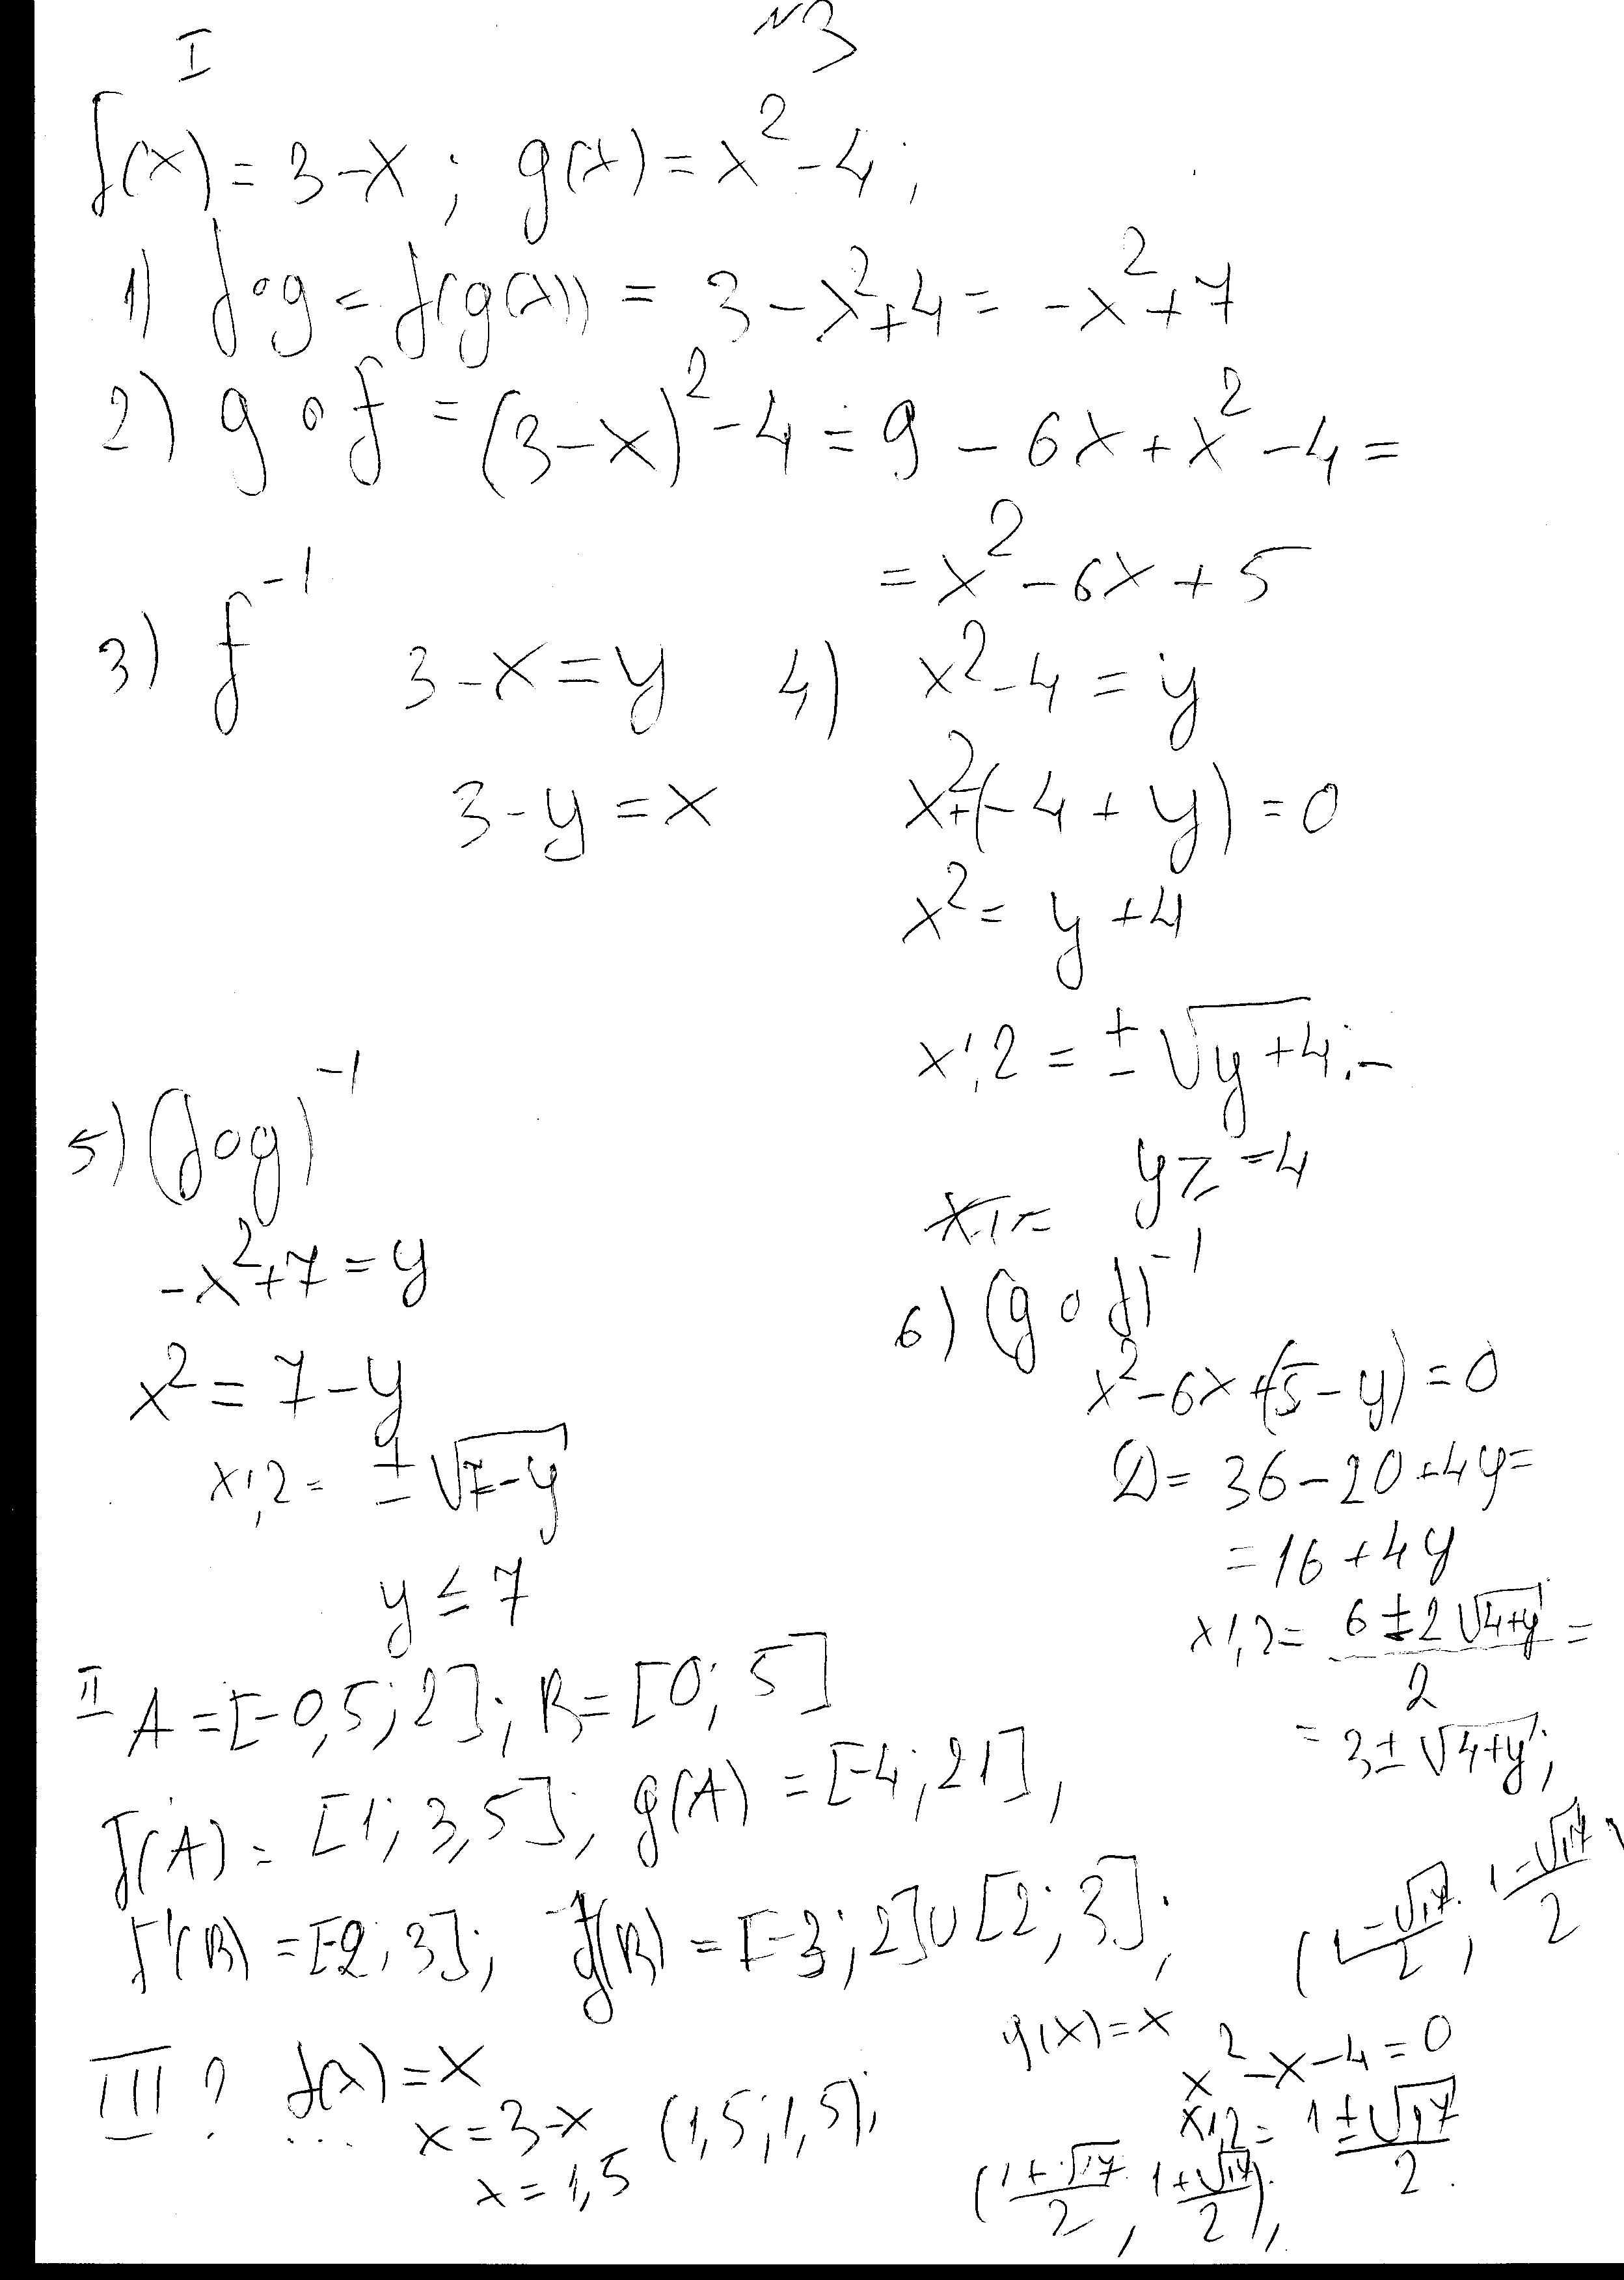 I
№3
f(x) = 3-x ; g(x) = x² - 4 ;
1) f∘g = f(g(x)) = 3 - x² + 4 = -x² + 7
2) g∘f = (3-x)² - 4 = 9 - 6x + x² - 4 =
= x² - 6x + 5
3) f⁻¹
3 - x = y
3 - y = x
4) x² - 4 = y
x² + (-4 + y) = 0
x² = y + 4
x1,2 = ± √(y+4) ; -
y ≥ -4
x1 =
5) (f∘g)⁻¹
-x² + 7 = y
x² = 7 - y
x1,2 = ± √(7-y)
y ≤ 7
6) (g∘f)⁻¹
x² - 6x + (5 - y) = 0
D = 36 - 20 + 4y =
= 16 + 4y
x1,2 = (6 ± 2√(4+y))/2 =
= 3 ± √(4+y) ;
II A = [-0,5 ; 2] ; B = [0 ; 5]
f(A) = [1 ; 3,5] ; g(A) = [-4 ; 21] ,
f⁻¹(B) = [-2 ; 3] ; g⁻¹(B) = [-3 ; 2] ∪ [2 ; 3] ;
III ? f(x) = x
...
x = 3 - x
x = 1,5
(1,5 ; 1,5) ;
g(x) = x
x² - x - 4 = 0
x1,2 = (1 ± √17)/2 .
((1+√17)/2 , (1+√17)/2) ;
((1-√17)/2 ; (1-√17)/2